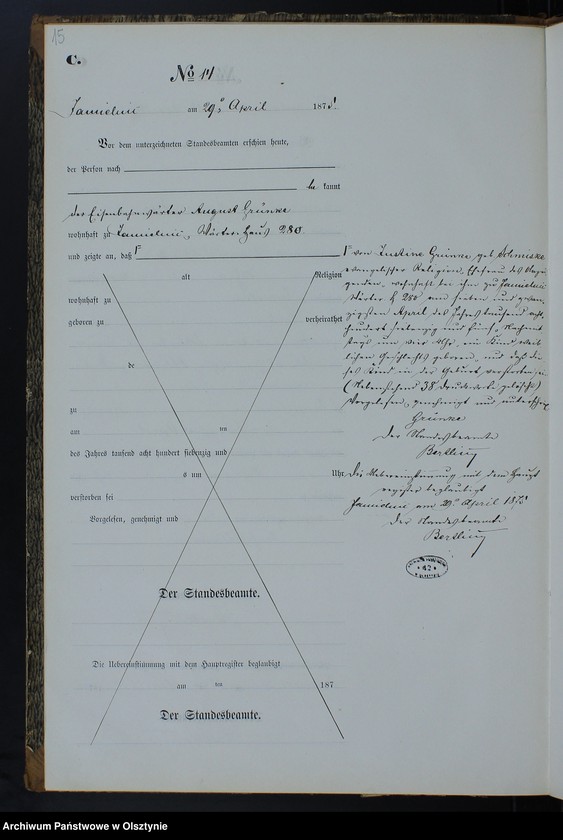 15
C.
No 14
am 29ten April 1875
Vor dem unterzeichneten Standesbeamten erschien heute,
der Person nach
be kannt
der Eisenbahnwärter August Grünke
wohnhaft zu Jamielnik, Wärterhaus 280
und zeigte an, daß
alt Religion
wohnhaft zu
geboren zu verheirathet
de
zu
am um
des Jahres tausend acht hundert siebenzig und
s um Uhr
verstorben sei
Vorgelesen, genehmigt und
Der Standesbeamte.
Die Uebereinstimmung mit dem Hauptregister beglaubigt
am ten 187
Der Standesbeamte.
von Justine Grünke, geb.
evangelischer Religion, Ehefrau des Anze-
genden, wohnhaft bei ihm zu Jamielnik
280 am sieben und zwan-
zigsten April des Jahres tausend acht
hundert siebenzig und fünf, Nachmit-
tags um vier Uhr, ein Kind weib-
lichen Geschlechts geboren, und daß die-
ses Kind in der Geburt verstorben sei
(Nebenstehend 38 Druckworte gelöscht)
Vorgelesen, genehmigt und
Grünke
Der Standesbeamte
Bertling
Die Uebereinstimmung mit dem Haupt
register beglaubigt
Jamielnik am 29ten April 1875
Der Standesbeamte
Bertling
Archiwum Państwowe w Olsztynie